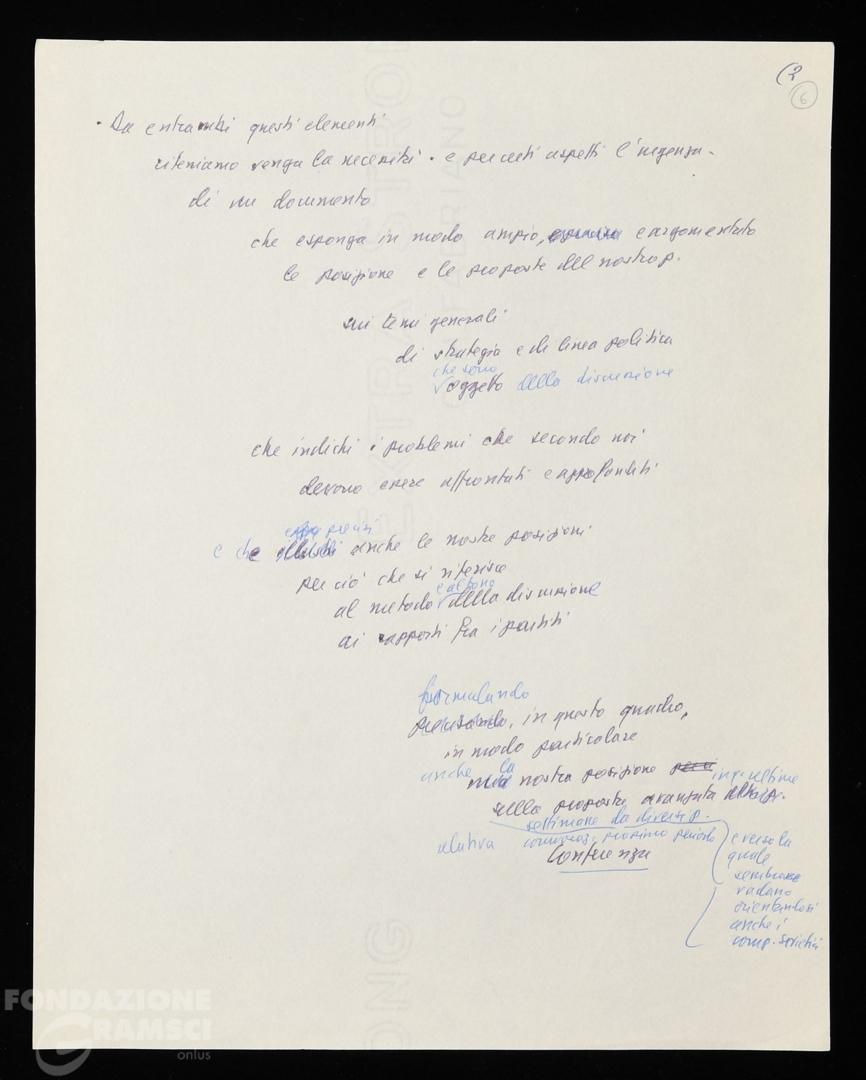 (2
6
• Da entrambi questi elementi
riteniamo venga la necessità - e per certi aspetti l'urgenza -
di un documento
che esponga in modo ampio, e argomentato
le posizione e le proposte del nostro p.
sui temi generali
di strategia e di linea politica
che sono
oggetto della discussione
che indichi i problemi che secondo noi
devono essere affrontati e approfonditi
precisi
e che anche le nostre posizioni
per ciò che si riferisce
e al tono
al metodo della discussione
ai rapporti fra i partiti
formulando
precisando, in questo quadro,
in modo particolare
anche la nostra posizione in q. ultime
sulla proposta avanzata
settimane da diversi p.
relativa prossimo periodo
Conferenza
e verso la
quale
sembrano
vadano
orientandosi
anche i
comp. sovietici
EXTRA STRONG
FABRIANO
FONDAZIONE
GRAMSCI
onlus